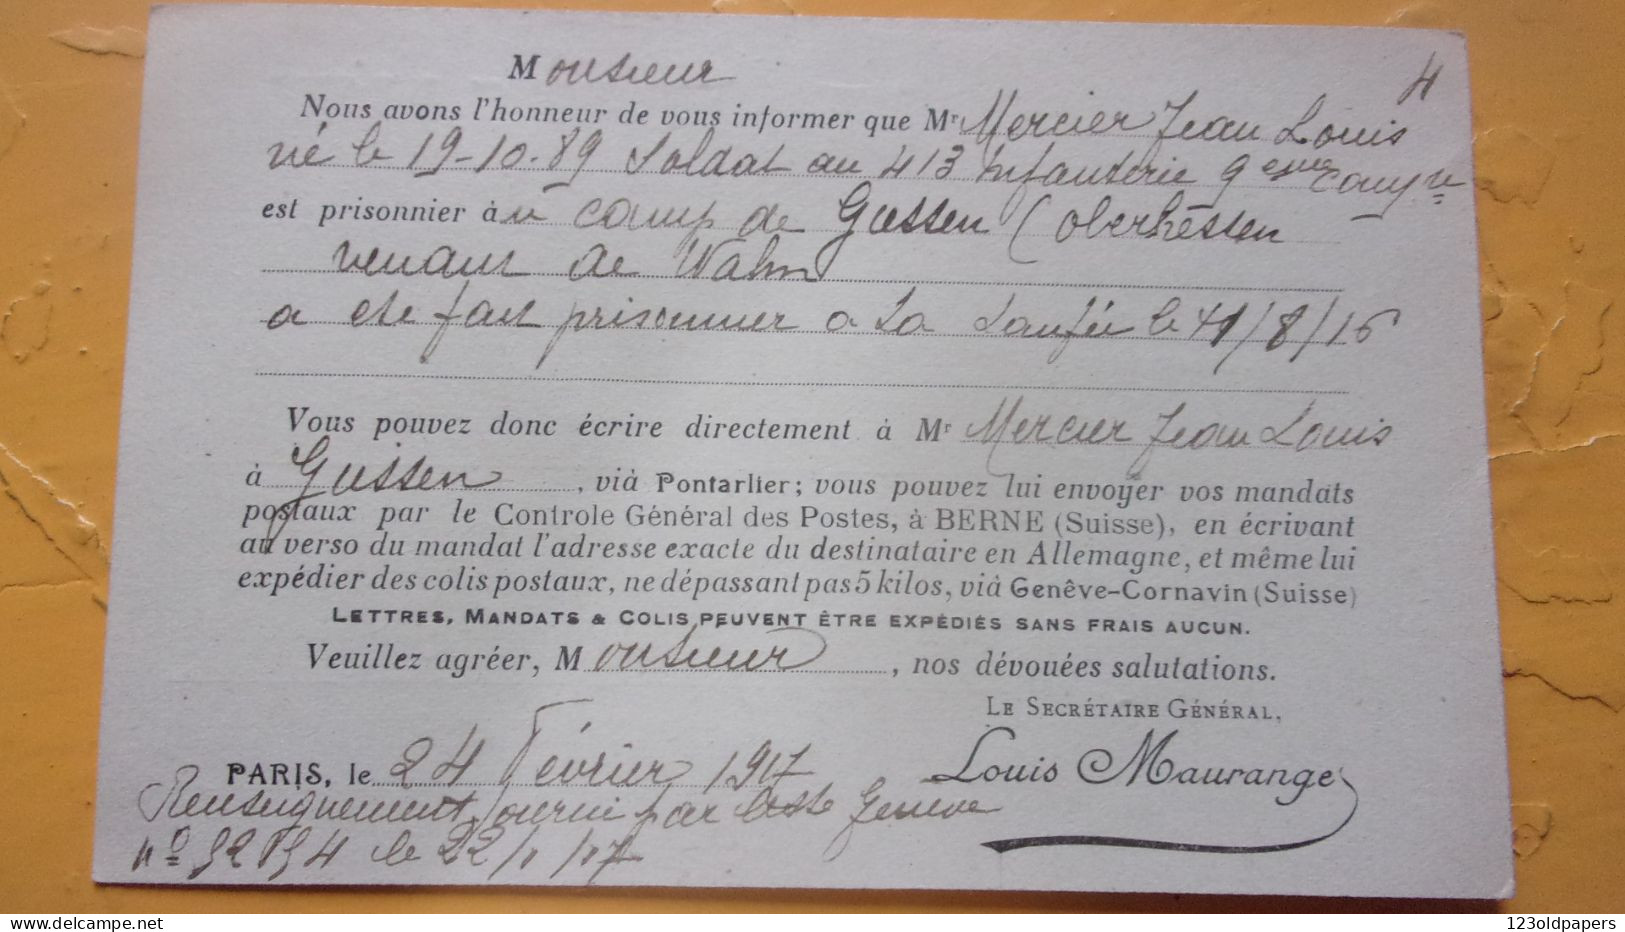 Monsieur
4
Nous avons l'honneur de vous informer que Mr Mercier Jean Louis
né le 19-10-89 Soldat au 413 Infanterie 9eme Compie
est prisonnier àu camp de Gussen (oberhessen
venant de Wahn
a ete fait prisonnier a La Laufée le 41/8/16
Vous pouvez donc écrire directement à Mr Mercier Jean Louis
à Gussen, vià Pontarlier; vous pouvez lui envoyer vos mandats
postaux par le Controle Général des Postes, à BERNE (Suisse), en écrivant
au verso du mandat l'adresse exacte du destinataire en Allemagne, et même lui
expédier des colis postaux, ne dépassant pas 5 kilos, vià Genêve-Cornavin (Suisse)
LETTRES, MANDATS & COLIS PEUVENT ÊTRE EXPÉDIÉS SANS FRAIS AUCUN.
Veuillez agréer, Monsieur, nos dévouées salutations.
LE SECRÉTAIRE GÉNÉRAL,
PARIS, le 24 Février 1917
Louis Maurange
Renseignement fourni par liste Geneve
n° le 22/1/17
123oldpapers